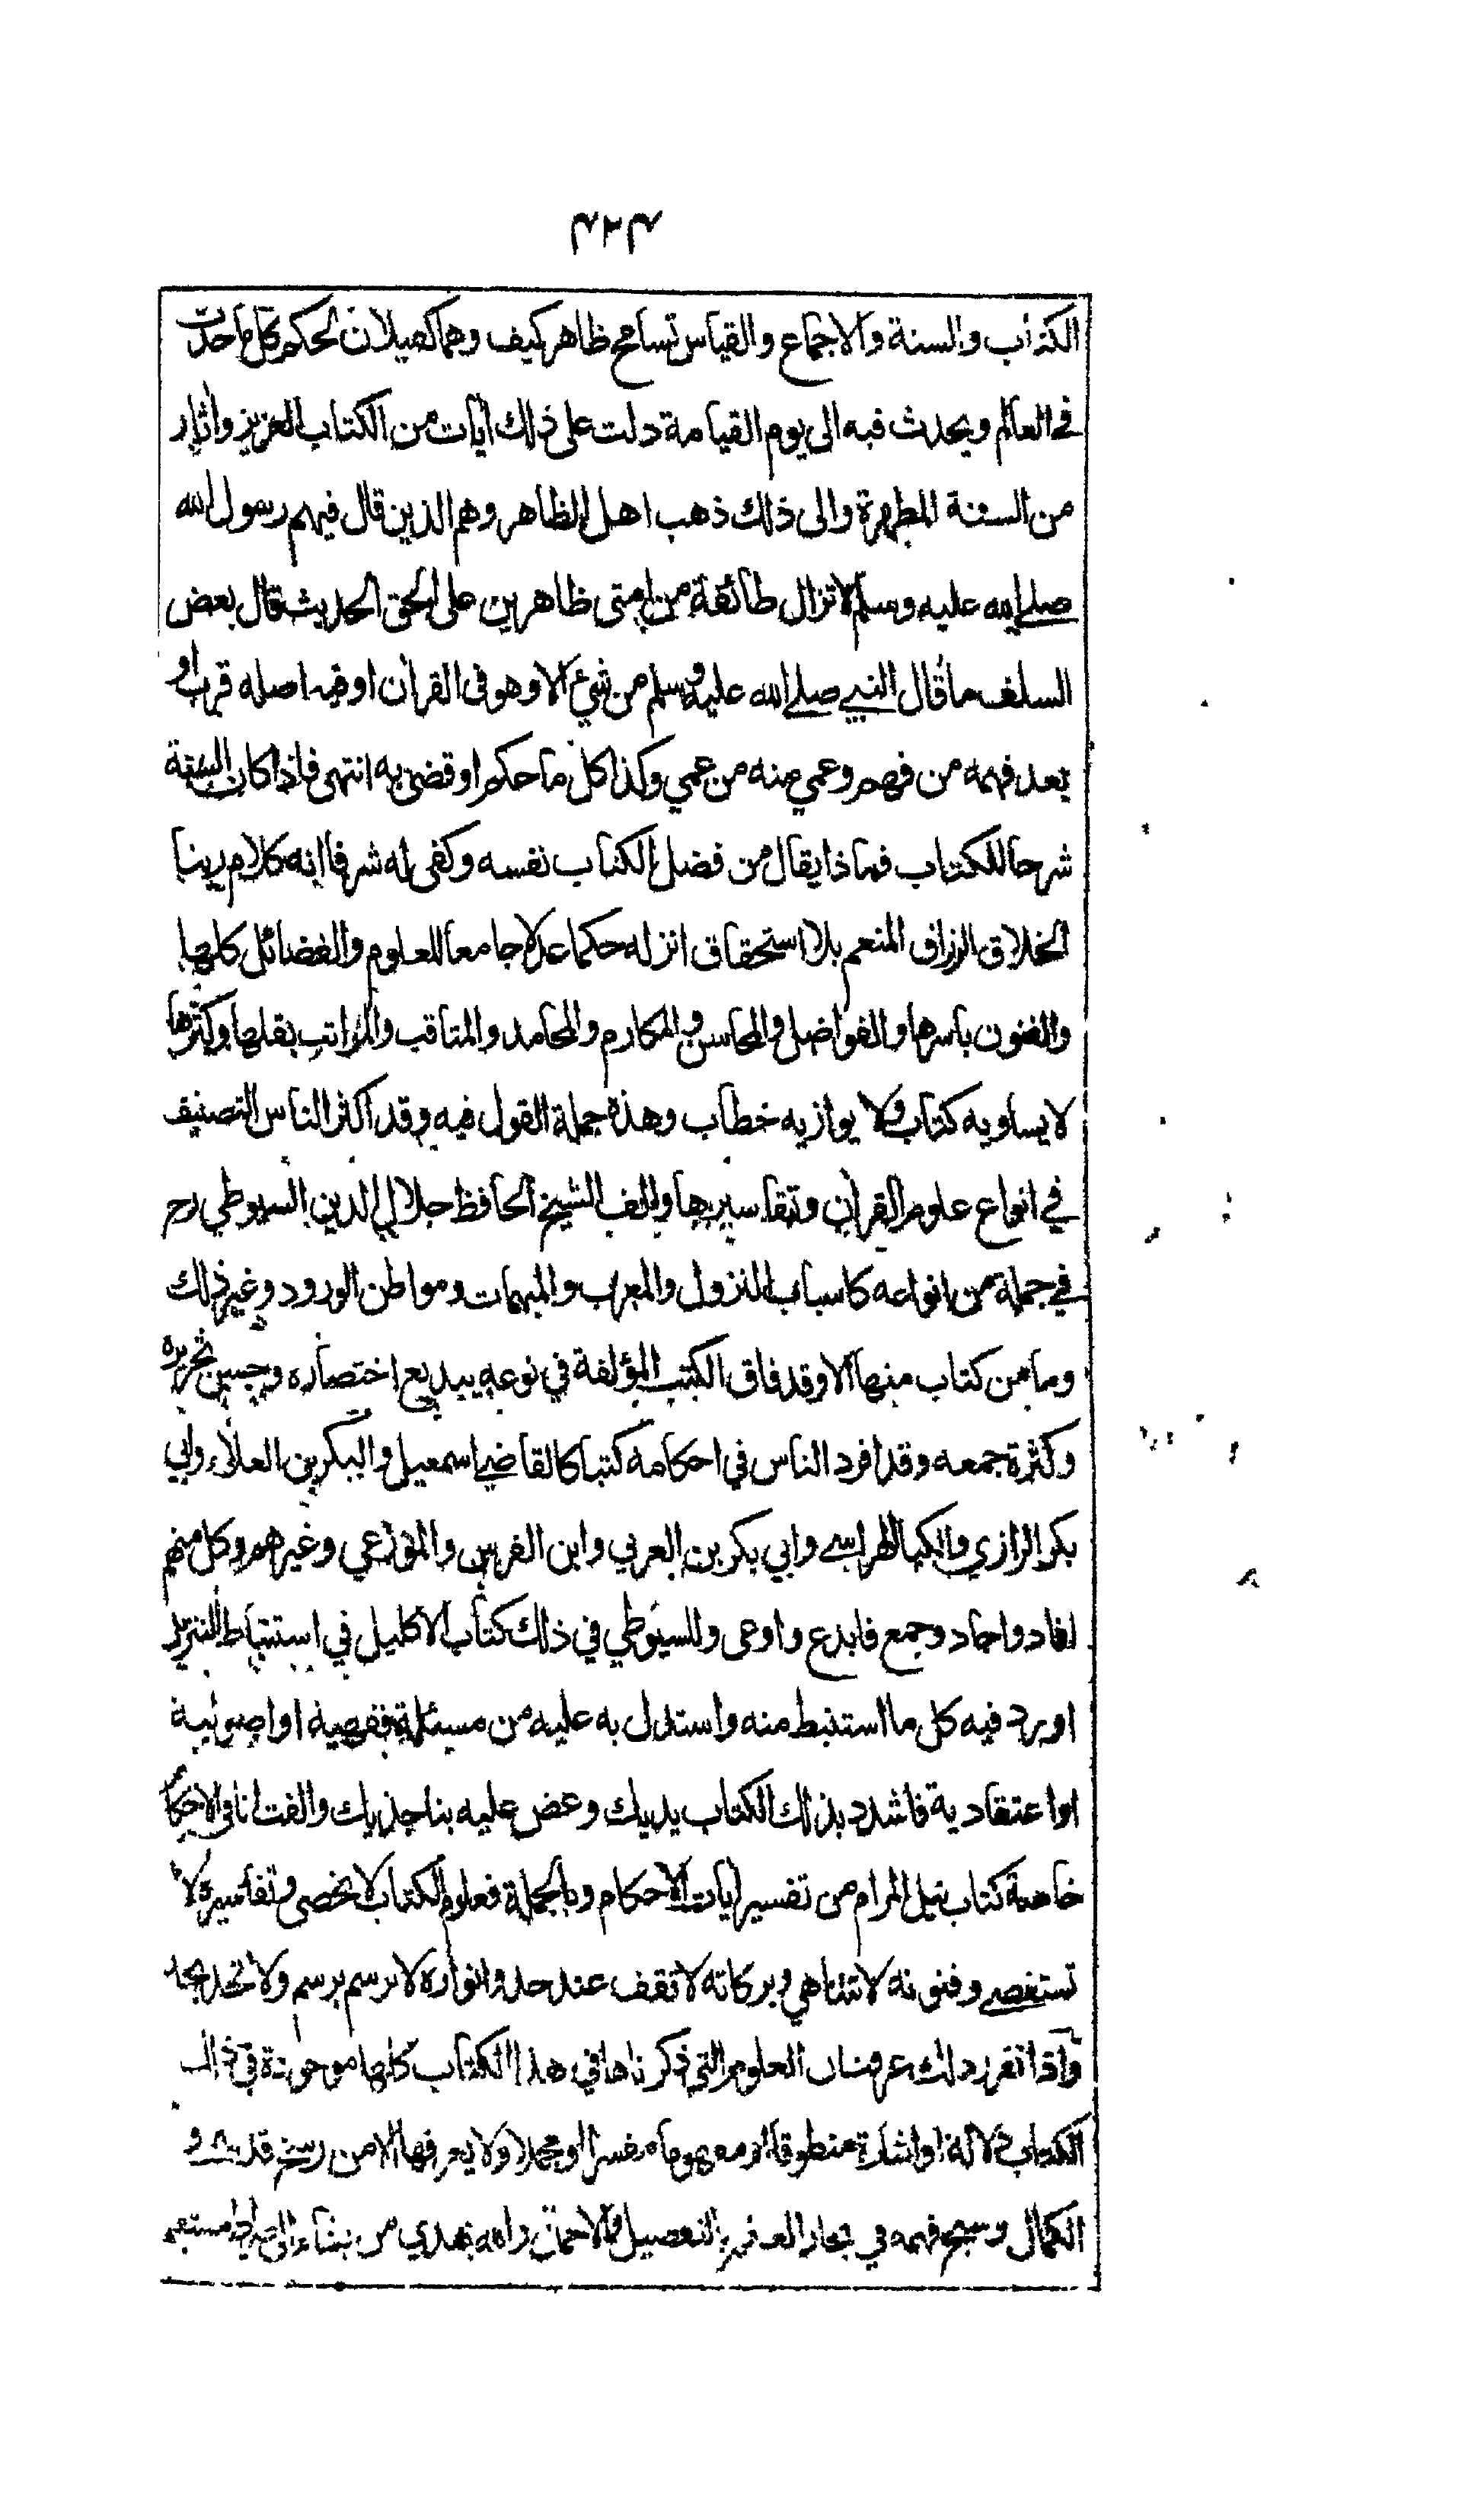 ٤٢٤
الكتاب والسنة والاجماع والقياس تسامح ظاهر كيف وهما كفيلان لحكم كل ما حدث
في العالم ويحدث فيه الى يوم القيامة دلت على ذلك ايات من الكتاب العزيز واثار
من السنة المطهرة والى ذلك ذهب اهل الظاهر وهم الذين قال فيهم رسول الله
صلى الله عليه وسلم لا تزال طائفة من امتى ظاهرين على الحق الحديث قال بعض
السلف ما قال النبي صلى الله عليه وسلم من شيء الا وهو فى القران او فيه اصله قرب او
بعد فهمه من فهم وعمي منه من عمي وكذا كل ما حكم او قضى به انتهى فاذا كان السنة
شرحا للكتاب فماذا يقال من فضل الكتاب نفسه وكفى له شرفا انه كلام ربنا
الخلاق الرزاق المنعم بلا استحقاق انزله حكما عدلا جامعا للعلوم والفضائل كلها
والفنون باسرها والفواضل والمحاسن والمكارم والمحامد والمناقب والمراتب بقلها وكثرها
لا يساويه كتاب ولا يوازيه خطاب وهذه جملة القول فيه وقد اكثر الناس التصنيف
في انواع علوم القران وتفاسيرها والف الشيخ الحافظ جلال الدين السيوطي رح
في جملة من انواعه كاسباب النزول والمعرب والمبهمات ومواطن الورود وغير ذلك
وما من كتاب منها الا وقد فاق الكتب المؤلفة في نوعه ببديع اختصاره وحسن تحريره
وكثرة جمعه وقد افرد الناس في احكامه كتبا كالقاضي اسمعيل والبكر بن العلاء وابي
بكر الرازي والكيا الهراسي وابي بكر بن العربي وابن الفرس والموزعي وغيرهم وكل منهم
افاد واجاد وجمع فابدع واوعى وللسيوطي في ذلك كتاب الاكليل في استنباط التنزيل
اورد فيه كل ما استنبط منه واستدل به عليه من مسئلة فقهية او اصولية
او اعتقادية فاشدد بذلك الكتاب يديك وعض عليه بناجذيك والفت انا في الاحكام
خاصة كتاب نيل المرام من تفسير ايات الاحكام وبالجملة فعلوم الكتاب لا تحصى وتفاسيره لا
تستقصى وفنونه لا تتناهي وبركاته لا تقف عند حد وانواره لا ترسم برسم ولا تحد بحد
واذا تقرر ذلك عرفت ان العلوم التي ذكرناها في هذا الكتاب كلها موجودة في ذلك
الكتاب دلالة او اشارة منطوقا او مفهوما مفسرا او مجملا ولا يعرفها الا من رسخ قدمه في
الكمال وسبح فهمه في بحار العلم بالتفصيل والاجمال والله يهدي من يشاء الى صراط مستقيم